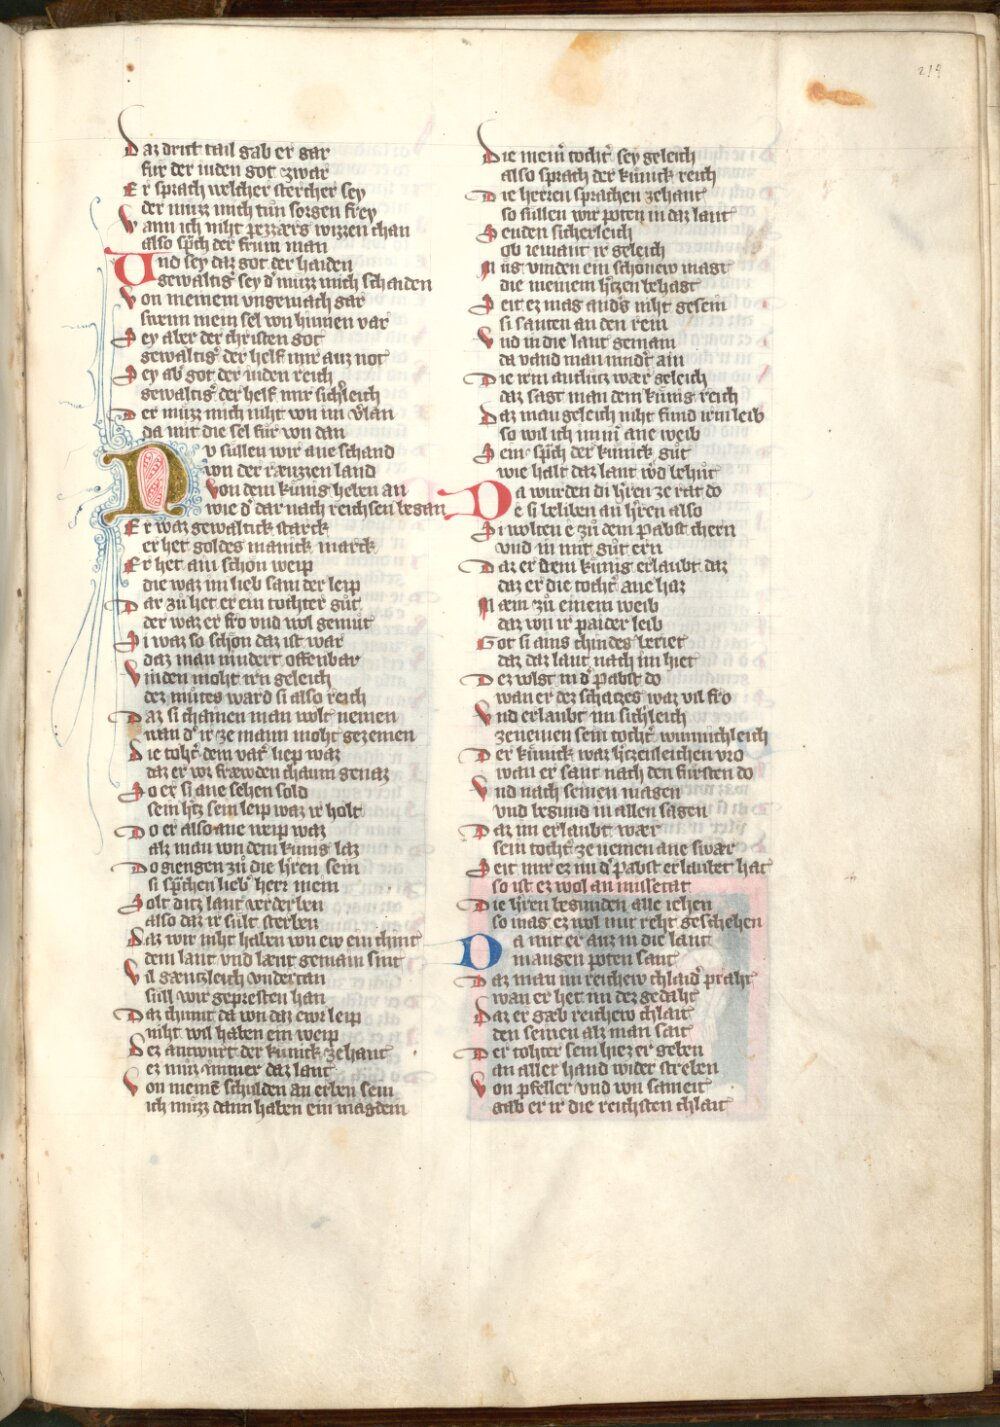 219
Daz dritt tail gab er gar
für der iuden got zwar
Er sprach welcher stercher sey
der muzz mich tun sorgen frey
Wann ich niht pezzærs wizzen chan
also sp̄ch der frum man
Und sey daz got der haiden
gewaltig̉ sey d̉ muzz mich schaiden
Von meinem vngemach gar
swenn mein sel von hinnen var
Sey aber der christen got
gewaltig̉ der helf mir auz not
Sey ab̉ got der iuden reich
gewaltig̉ der helf mir sich̉leich
Der müzz mich niht von im v̉lan
da mit die sel für von dan
Nv süllen wir ane schand
von der ræuzzen land
Von dem künig heben an
wie d̉ dar nach reichsen began
Er waz gewaltick starck
er het goldes manick marck
Er het ain schön weip
die waz im lieb sam der leip
Dar zů het er ein tochter gůt
der waz er fro vnd wol gemůt
Si waz so schön daz ist war
daz man nindert offenbar
Vinden moht irn geleich
dez můtes ward si also reich
Daz si chainen man wolt nemen
wan d̉ ir ze mann moht gezemen
Die toht̉ dem vat̉ liep waz
daz er vor fræwden chaum genaz
So er si ane sehen sold
sein h̉tz sein leip waz ir holt
Do er also ane weip waz
alz man von dem künig laz
Do giengen zů die h̉ren sein
si sp̄chen lieb̉ herr mein
Solt ditz lant verderben
also daz ir sült sterben
Daz wir niht haben von ew ein chint
dem laut vnd lænt gemain sint
Vil gæntzleich vndertan
süll wir gepresten han
Daz chumt da von daz ewr leip
niht wil haben ein weip
Dez antwurt der künick zehant
ez müz immer daz lant
Von meinē schulden an erben sein
ich müzz dann haben ein magdein
Die mein̉ tocht̉ sey geleich
also sprach der künick reich
Die herren sprachen zehant
so süllen wir poten in daz lant
Senden sicherleich
ob iemant ir geleich
Müg vinden ein schönew magt
die meinem h̉tzen behagt
Seit ez mag and̉s niht gesein
si santen an den rein
Vnd in die lant gemain
da vand man nindr̉t ain
Die irm antlütz wær geleich
daz sagt man dem künig reich
Daz man geleich niht fund irm leib
so wil ich imm̉ ane weib
Sein sp̄ch der künick gůt
wie halt daz lant w̉d behůt
Da wurden di h̉ren ze rat do
e si beliben an h̉ren also
Si wolten e zů dem Pabst chern
vnd in mit gůt ern
Daz er dem künig erlaubt daz
daz er die tocht̉ ane haz
Næm zů einem weib
daz von ir paider leib
Got si ains chindes beriet
daz daz lant nach im hiet
Dez volgt in d̉ pabst do
wan er dez schatzes waz vil fro
Vnd erlaubt im sich̉leich
zenemen sein tocht̉ minnichleich
Der künick waz h̉tzenleichen vro
wan er sant nach den fürsten do
Vnd nach seinen magen
vnd begund in allen sagen
Daz im erlaubt wær
sein tocht̉ ze nemen ane swær
Seit mir ez im d̉ Pabst erlaubet hat
so ist ez wol an missetat
Die h̉ren begunden alle iehen
so mag ez wol mit reht geschehen
Da mit er auz in die lant
mangen poten sant
Daz man im reichew chlaid̉ praht
wan er het im dez gedaht
Daz er gæb reichew chlait
den seinen alz man sait
Der tohter sein hiez er geben
an aller hand wider streben
Von pfeller vnd von sameit
gab er ir die reichsten chlait